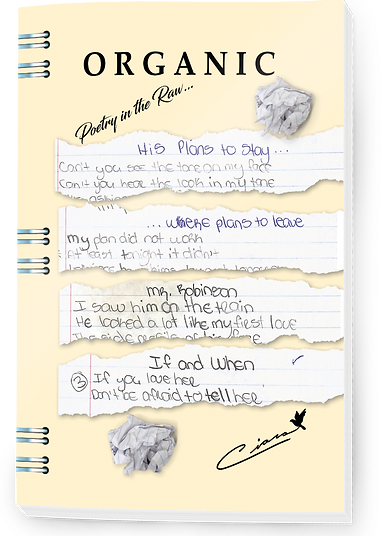 ORGANIC
Poetry in the Raw...
His Plans to Stay...
Can't you see the tone on my face
Can't you hear the look in my tone
...where plans to leave
my plan did not work
At least tonight it didn't
mr. Robinson
I saw him on the train
He looked a lot like my first love
The side profile of his face
If and When
3 If you love her
Don't be afraid to tell her
Ciara